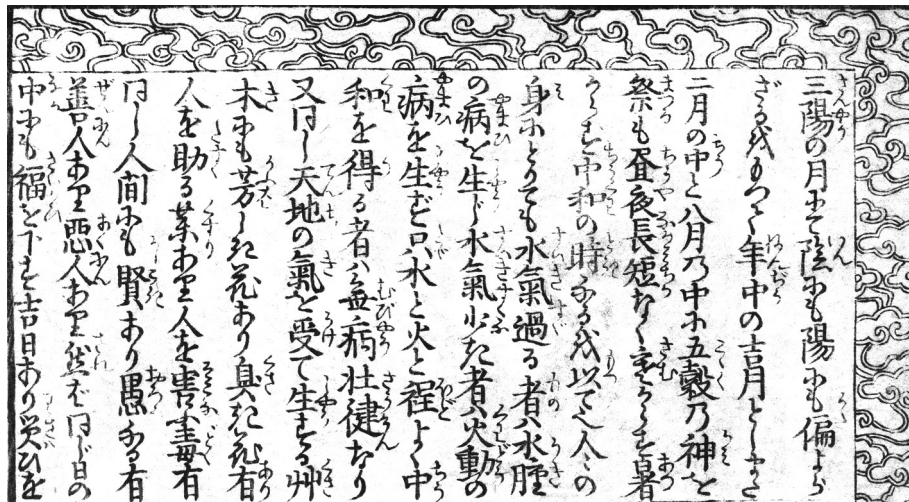 三陽の月にて陰にも陽にも偏よら
ざる我もつて年中の吉月としまた
二月の中と八月乃中に五穀乃神を
祭も昼夜長短なく寒からず暑
からず中和の時なる我以て也人々の
身にとりても水氣過る者ハ水腫
の病を生じ水氣少き者ハ火動の
病を生ず只水と火と程よく中
和を得る者ハ無病壮健なり
又同し天地の氣を受て生ずる艸
木にも芳しき花あり臭き花有
人を助る薬あり人を害す毒有
同し人間にも賢あり愚なる有
善人あり悪人あり然ば同じ日の
中にも福を下す吉日あり災ひを